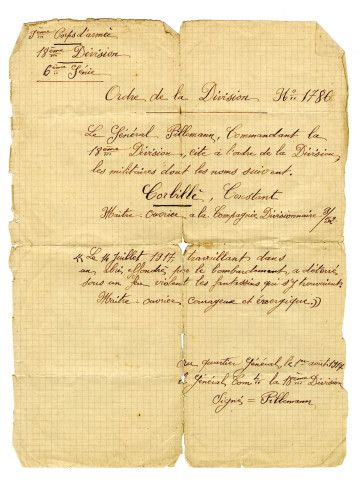 9ème Corps d'armée
18ème Division
6ème Génie
Ordre de la Division No 1786
Le Général Pillemann, Commandant la
18ème Division, cite à l'odre de la Division,
les militaires dont les noms suivent.
Corbillé, Constant
Maître-ouvrier, à la Compagnie Divisionnaire 9/62
« Le 14 Juillet 1917, travaillant dans
un abri effondré par le bombardement, a déterré
sous un feu violent les fantassins qui s'y trouvaient
Maître-ouvrier courageux et énergique. »
au quartier Général, le 1er août 1917
Général, Comdt la 18ème Division
Signé = Pillemann